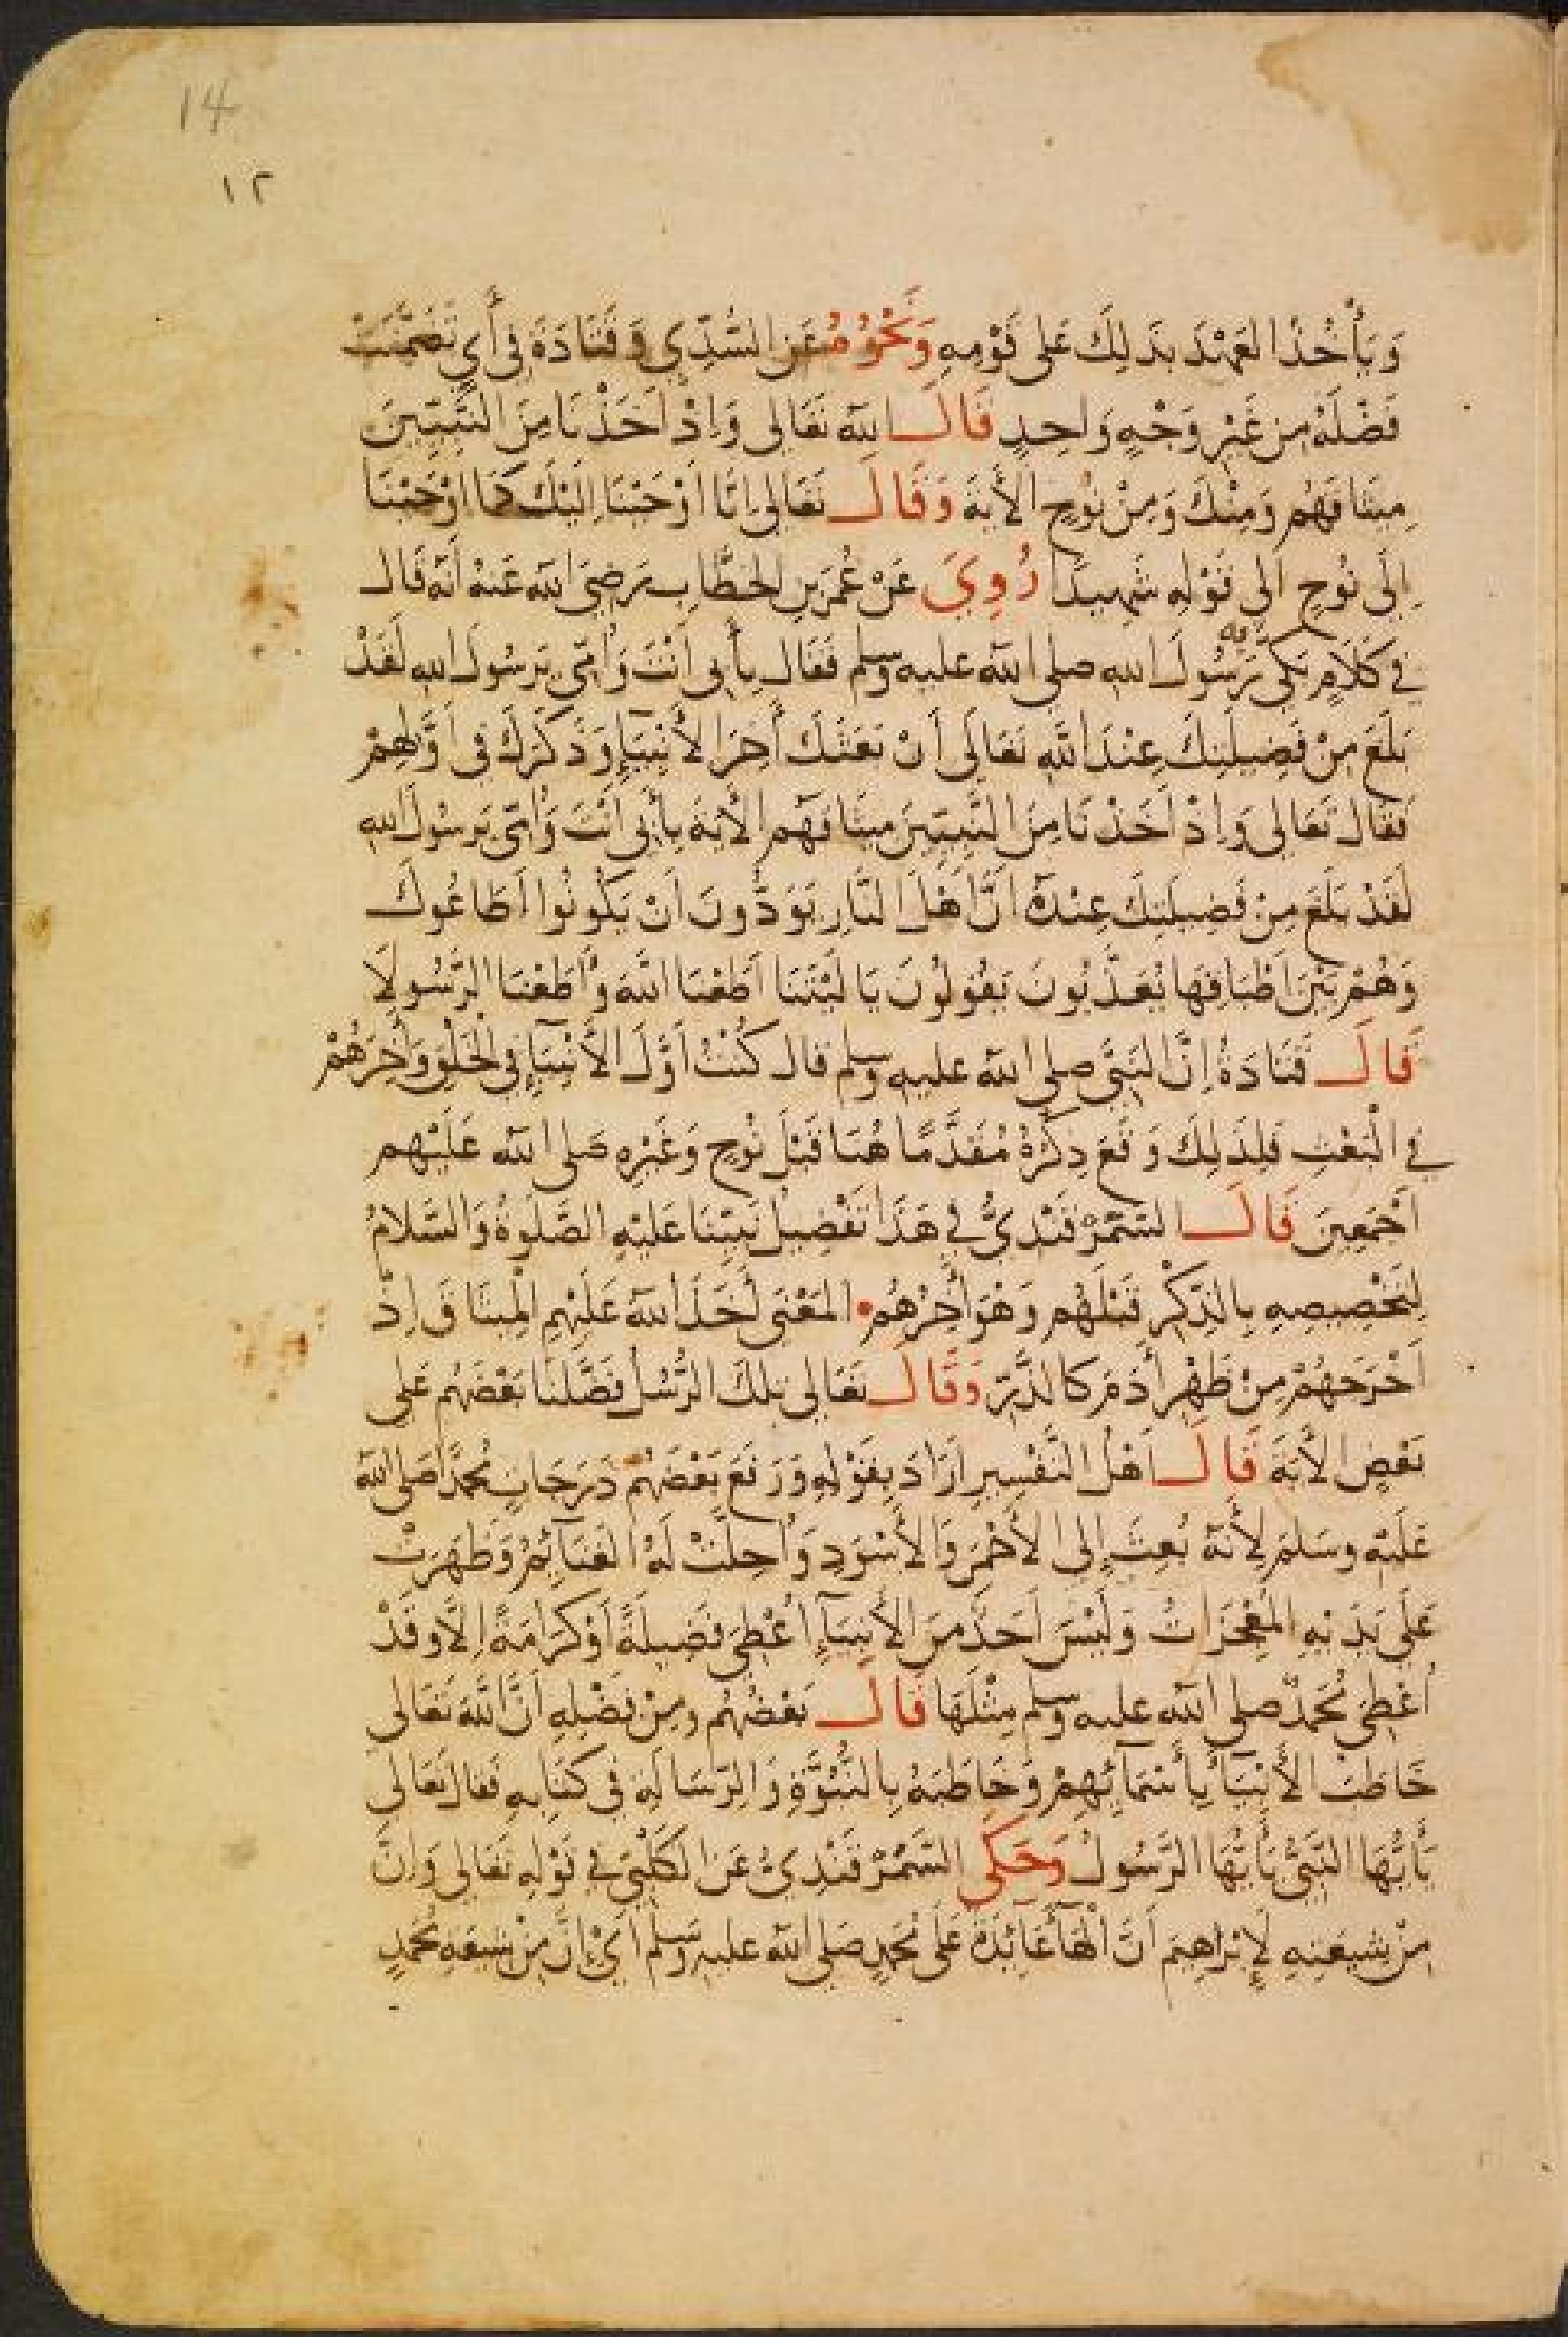 14
١٢
وَيَأْخُذُ العَهْدَ بِذَلِكَ عَلى قَوْمِهِ وَنَحْوُهُ عَنِ السُّدِّيِ وَقَتَادَةَ فِي أيٍ تَضَمَّنَتْ
فَضْلَهُ مِن غَيْرِ وَجْهٍ وَاحِدٍ قَالَ الله تَعَالى وَاِذْ اَخَذْنَا مِنَ النَّبِيّٖينَ
مِيثَاقَهُم وَمِنْكَ وَمِنْ نُوْحٍ الأيَةَ وَقَالَ تَعَالى اِنَّا اَوْحَيْنَا اِلَيْكَ كَمَا اَوْحَيْنَا
اِلَى نُوحٍ الى قَوْلِهِ شَهِيدًا رُوِيَ عَنْ عُمَرَ بنِ الخَطَّابِ رَضِيَ الله عَنهُ اَنّه قَالَ
فِي كَلَامٍ بَكَى بِهِ رَسُولَ الله صلى الله عليه وسلم فَقَال بِأَبِى اَنْتَ وَاُمّى يَرَسُولَ الله لَقَدْ
بَلَغَ مِنْ فَضِيلَتِكَ عِنْدَ اللَّهِ تَعَالَى اَنْ بَعَثَكَ أَخِرَ الأَنْبِيَآءِ وَذَكَرَكَ فى اَوَّلِهِمْ
فَقَالَ تَعَالى وَاِذْ اَخَذْنَا مِنَ النَّبِيّينَ مِيثَاقَهُم الْأيَةَ بِأَبِى اَنْتَ وَاُمّى يَرسُولَ الله
لَقَدْ بَلَغَ مِنْ فَضِيلَتِكَ عِنْدَهُ اَنَّ اَهْلَ النَّارِ يَوَدُّونَ اَنْ يَكُونُوا اَطَاعُوكَ
وَهُمْ بَيْنَ اَطْبَاقِهَا يُعَذَّبُونَ يَقُولُونَ يَا لَيْتَنَا اَطَعْنَا اللَّهَ وَاَطَعْنَا الرَّسُولَا
قَالَ قَتَادَةُ اِنَّ النَبِيَّ صلى الله عليه وسلم قال كُنْتُ اَوَّلَ الأَنْبِيَآءِ فِي الْخَلْقِ وَأخِرَهُمْ
فِي الْبَعْثِ فَلِذَلِكَ وَقَعَ ذِكْرُهُ مُقَدَّمًا هُنَا قَبْلَ نُوْحٍ وَغَيْرِهِ صَلى الله عَلَيْهِم
اَجْمَعِينَ قَالَ السَّمَرْقَنْدِيُّ فِي هَذَا تَفْضِيلُ نَبِيّنَا عَلَيْهِ الصَّلوةُ وَالسَّلامُ
لِتَخْصِيصِهِ بِالذِّكْرِ قَبْلَهُم وَهْوَ أخِرُهُم • المَعْنَى اَخَذَ الله عَلَيْهِم الْمِيثَاقَ اِذْ
اَخْرَجَهُمْ مِنْ ظَهْرِ أدَمَ كَالذَّرِّ وَقَالَ تَعَالى تِلكَ الرُّسُلُ فَضَّلْنَا بَعْضَهُم عَلى
بَعْضٍ الأيَةَ قَالَ اَهْلُ التَّفْسِيرِ اَرَادَ بِقَوْلِهِ وَرَفَعَ بَعْضَهُم دَرَجَاتٍ مُحَمَّدًا صَلى الله
عَلَيْهِ وسَلمَ لِأَنَّهُ بُعِثَ اِلى الأَحْمَرِ وَالأَسْوَدِ وَاُحِلَّتْ لَهُ الغَنَآئِمُ وَظَهَرَتْ
عَلَى يَدَيْهِ المُعْجِزَاتُ وَلَيْسَ اَحَدٌ مِنَ الأَنبِيَآءِ اُعْطِيَ فَضِيلَةً اَوْ كَرَامَةً اِلَّا وَقَدْ
اُعْطِيَ مُحَمدٌ صلى الله عليه وسلم مِثْلَهَا قَالَ بَعْضُهُم ومِنْ فَضْلِهِ اَنَّ اللَّهَ تَعَالى
خَاطَبَ الأَنْبِيَآءَ بِأَسْمَآئِهِمْ وَخَاطَبَهُ بِالنُّبُوَّةِ وَالرِّسَالَةِ فى كِتَابِهِ فَقَالَ تَعَالى
يَأَيُّهَا النَّبِيُّ يَأَيُّهَا الرَّسُولُ وَحَكَى السَّمَرْقَنْدِيُّ عَنِ الكَلْبِيِّ فِي قَوْلِهِ تَعَالى وَاِنَّ
مِنْ شِيعَتِهِ لَإِبْرَاهِيمَ اَنَّ الْهَآءَ عَآئِدَةٌ عَلَى مُحَمدٍ صَلى الله عليه وسَلم اَيْ اِنَّ مِنْ شِيعَةِ مُحَمدٍ